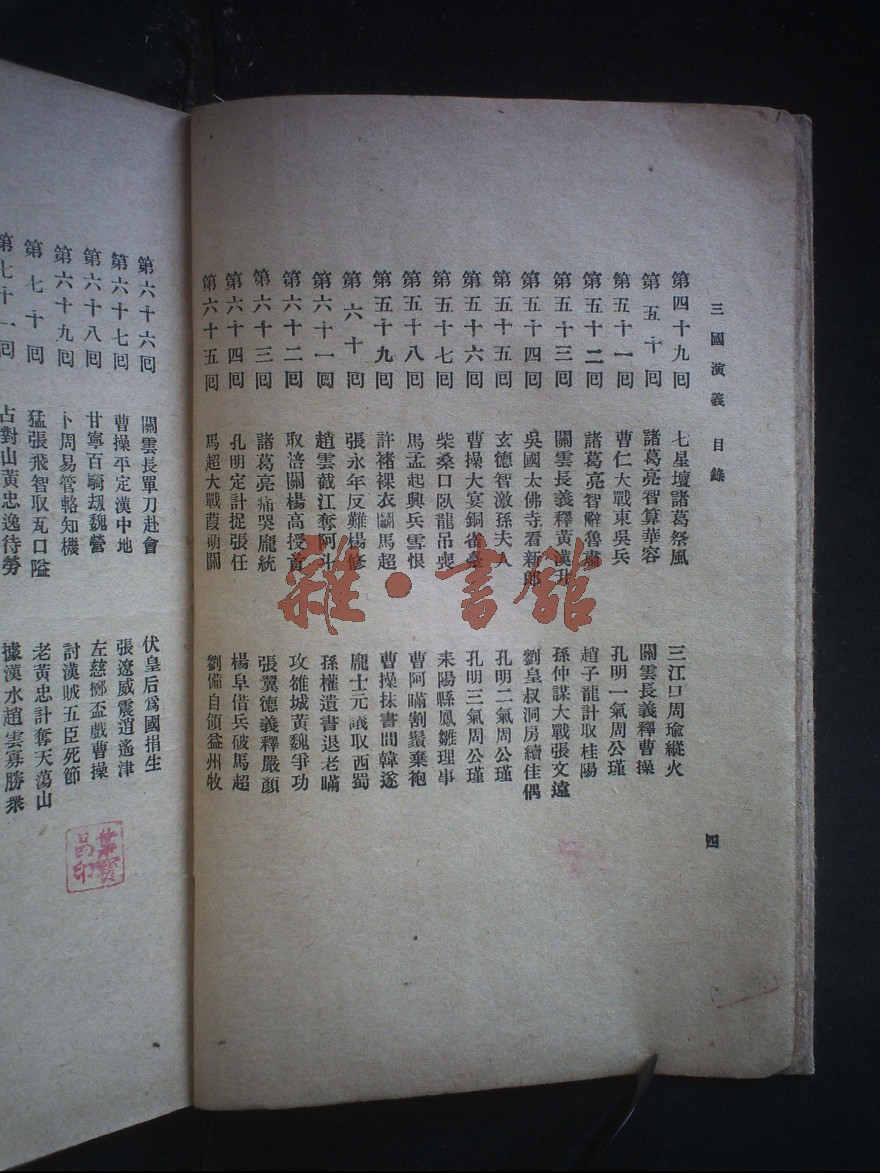 三國演義 目錄 四
第四十九回 七星壇諸葛祭風 三江口周瑜縱火
第五十回 諸葛亮智算華容 關雲長義釋曹操
第五十一回 曹仁大戰東吳兵 孔明一氣周公瑾
第五十二回 諸葛亮智辭魯肅 趙子龍計取桂陽
第五十三回 關雲長義釋黃漢升 孫仲謀大戰張文遠
第五十四回 吳國太佛寺看新郎 劉皇叔洞房續佳偶
第五十五回 玄德智激孫夫人 孔明二氣周公瑾
第五十六回 曹操大宴銅雀臺 孔明三氣周公瑾
第五十七回 柴桑口臥龍吊喪 耒陽縣鳳雛理事
第五十八回 馬孟起興兵雪恨 曹阿瞞割鬚棄袍
第五十九回 許褚裸衣鬬馬超 曹操抹書間韓遂
第六十回 張永年反難楊修 龐士元議取西蜀
第六十一回 趙雲截江奪阿斗 孫權遺書退老瞞
第六十二回 取涪關楊高授首 攻雒城黃魏爭功
第六十三回 諸葛亮痛哭龐統 張翼德義釋嚴顏
第六十四回 孔明定計捉張任 楊阜借兵破馬超
第六十五回 馬超大戰葭萌關 劉備自領益州牧
第六十六回 關雲長單刀赴會 伏皇后爲國捐生
第六十七回 曹操平定漢中地 張遼威震逍遙津
第六十八回 甘寧百騎劫魏營 左慈擲盃戲曹操
第六十九回 卜周易管輅知機 討漢賊五臣死節
第七十回 猛張飛智取瓦口隘 老黃忠計奪天蕩山
第七十一回 占對山黃忠逸待勞 據漢水趙雲寡勝衆
雜·書館